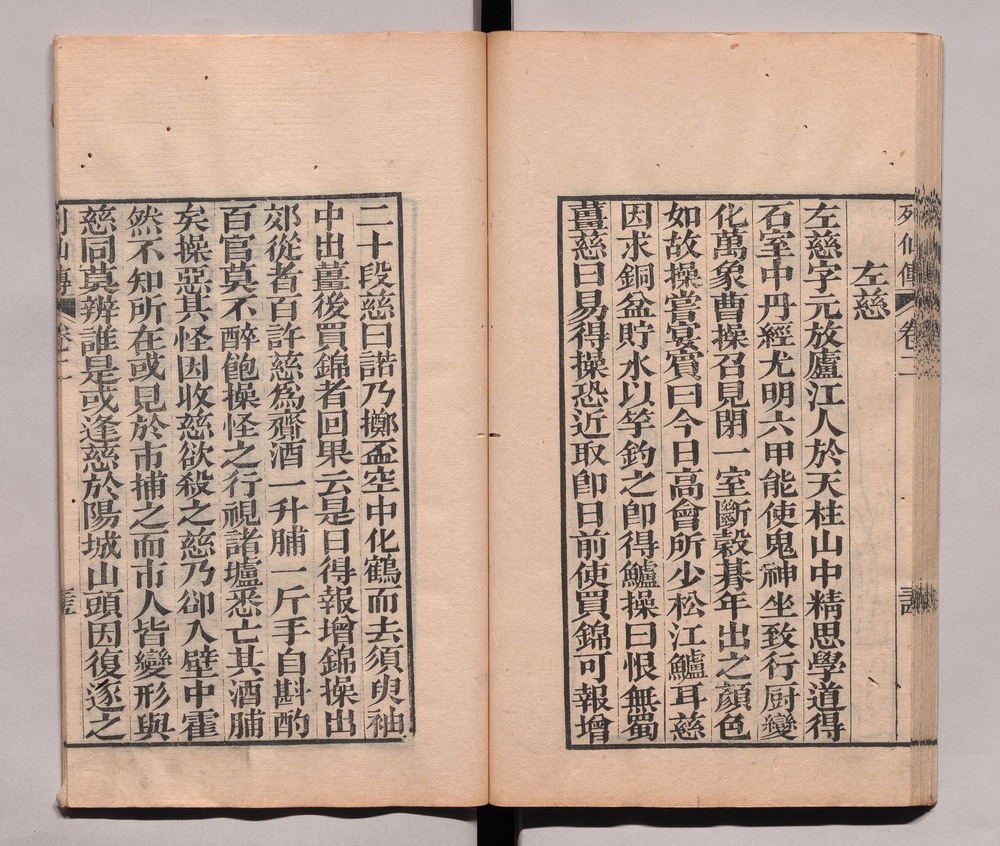 列仙傳 卷二
左慈
左慈字元放廬江人於天柱山中精思學道得
石室中丹經尤明六甲能使鬼神坐致行厨變
化萬象曹操召見閉一室斷穀朞年出之顏色
如故操嘗宴賓曰今日高會所少松江鱸耳慈
因求銅盆貯水以竿釣之卽得鱸操曰恨無蜀
薑慈曰易得操恐近取卽曰前使買錦可報增
二十段慈曰諾乃擲盃空中化鶴而去須臾袖
中出薑後買錦者回果云是日得報增錦操出
郊從者百許慈爲齎酒一升脯一斤手自斟酌
百官莫不醉飽操怪之行視諸壚悉亡其酒脯
矣操惡其怪因收慈欲殺之慈乃卻入壁中霍
然不知所在或見於市捕之而市人皆變形與
慈同莫辨誰是或逢慈於陽城山頭因復逐之
列仙傳 卷二